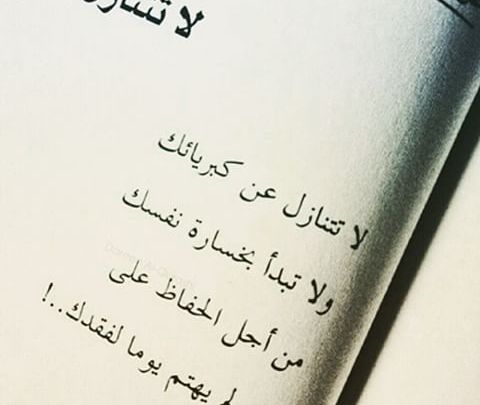 لا تتنازل
لا تتنازل عن كبريائك
ولا تبدأ بخسارة نفسك
من أجل الحفاظ على
لم يهتم يوما لفقدك..!